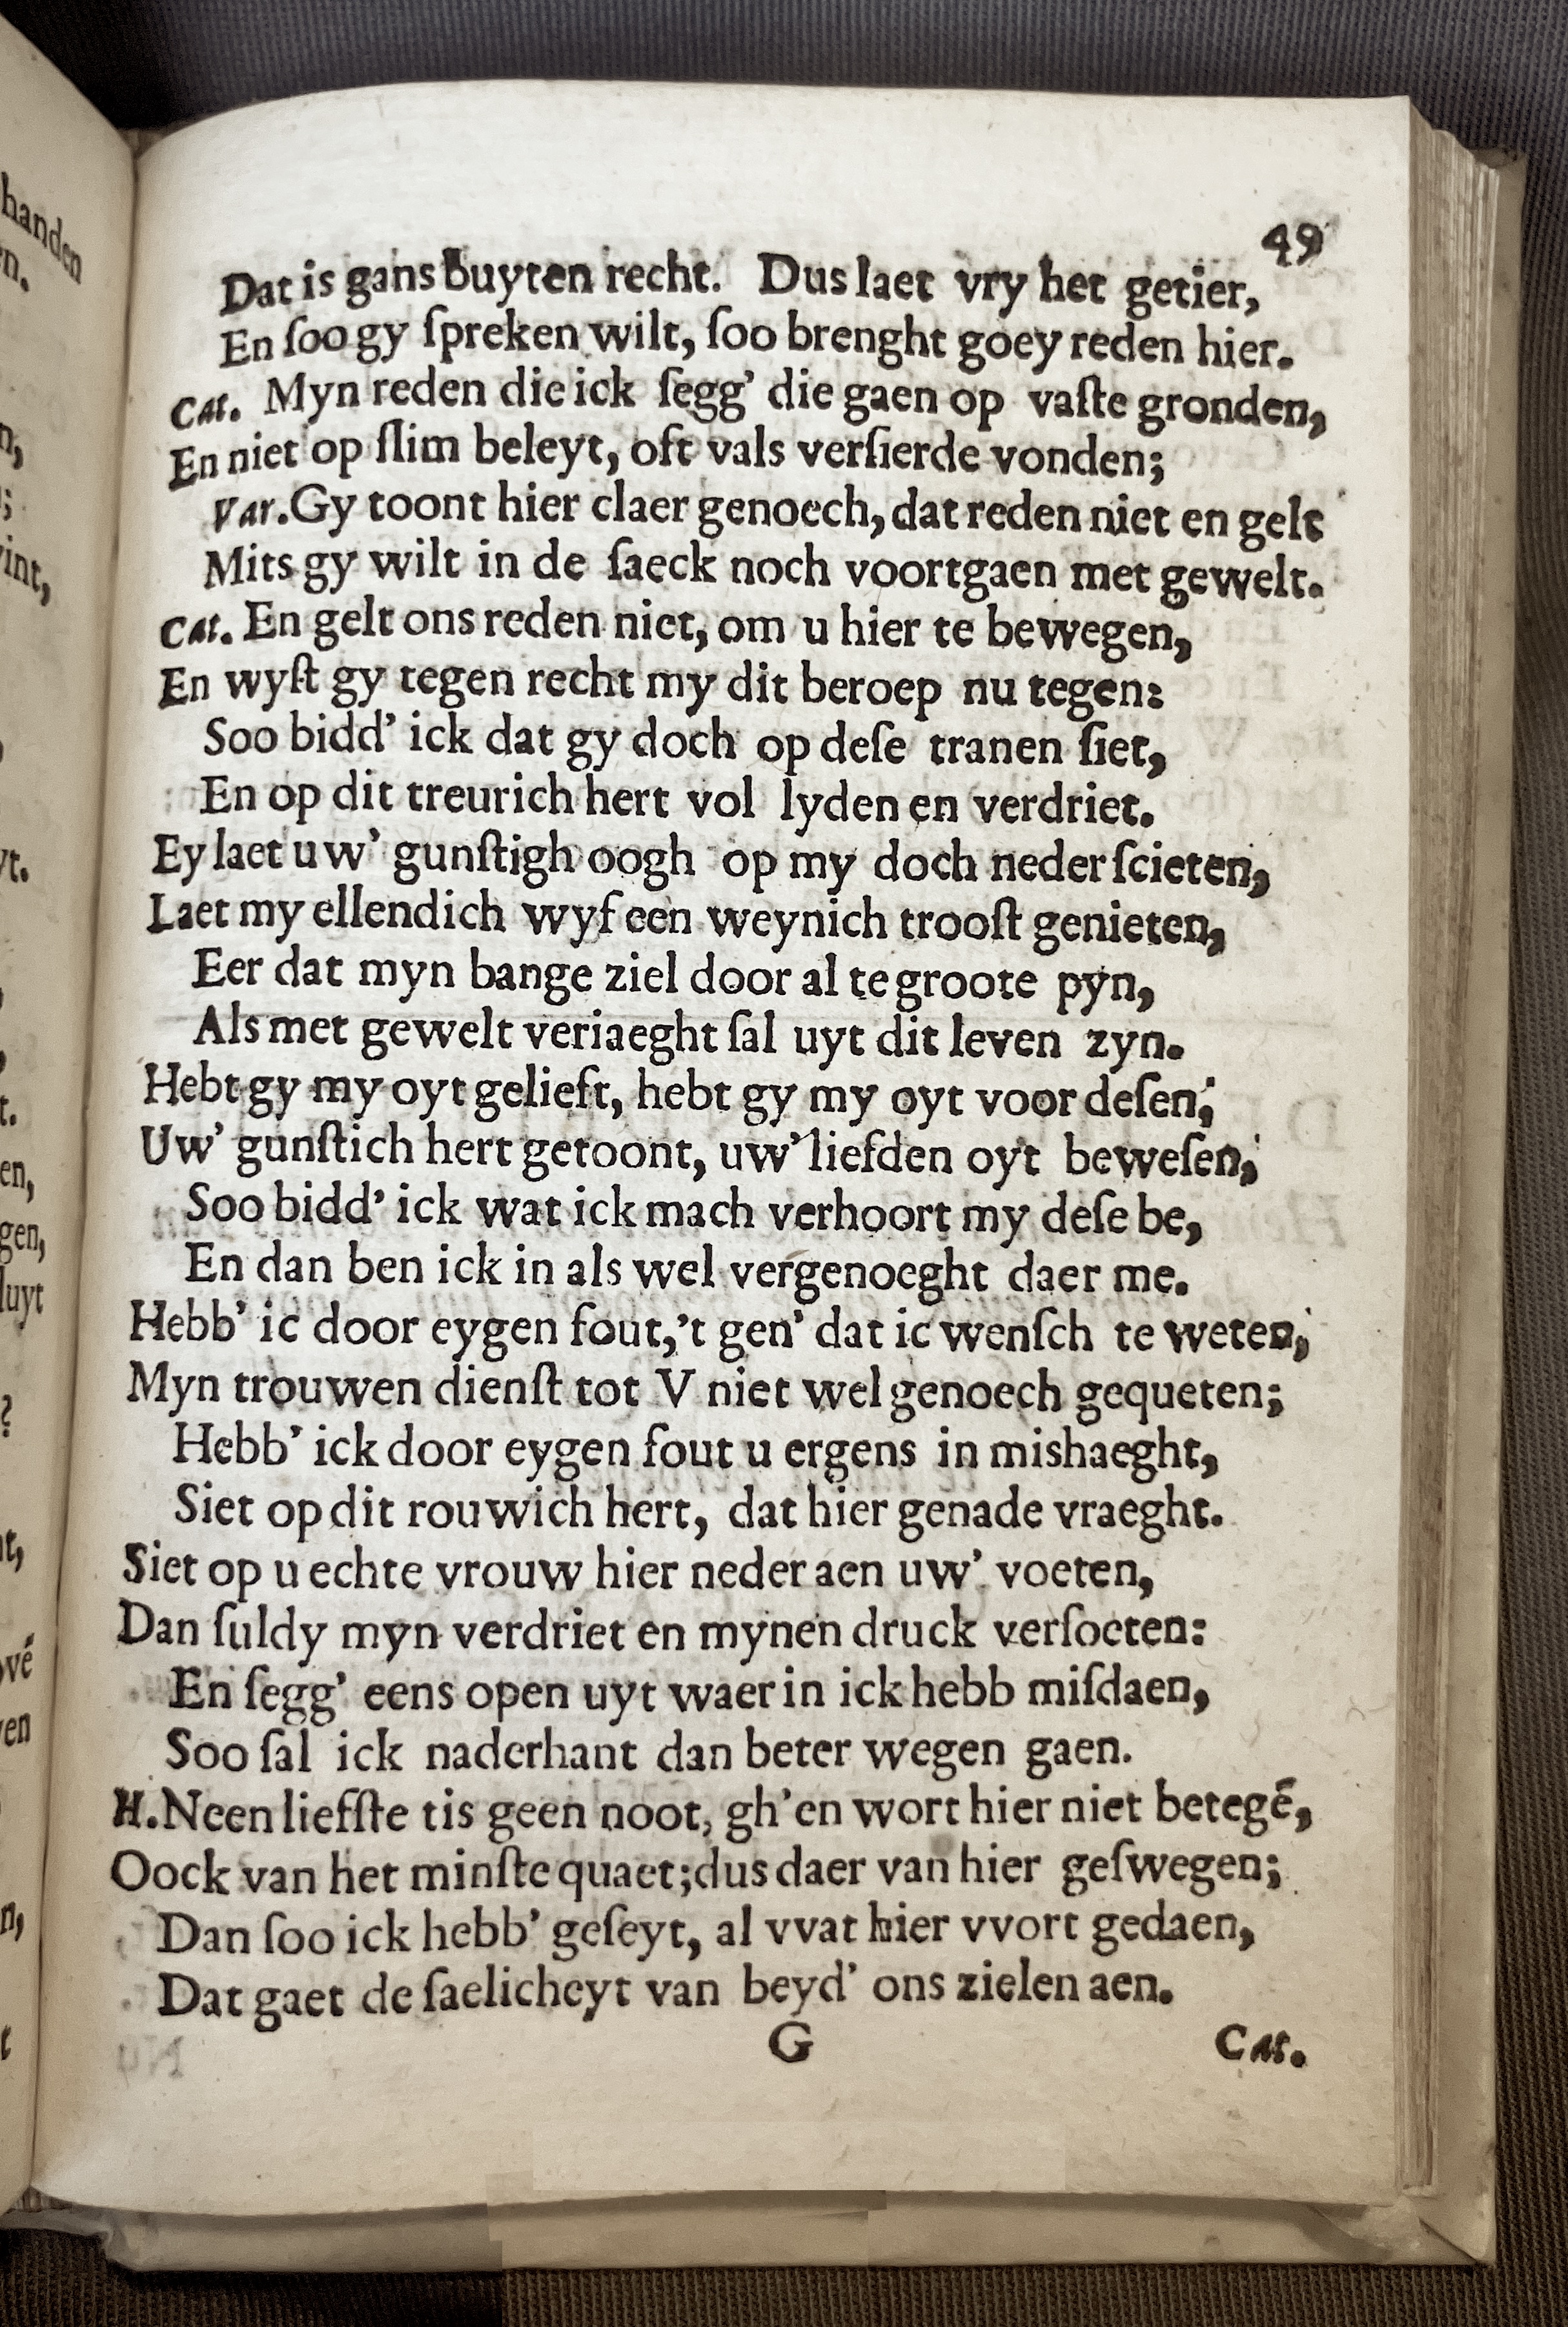 49
Dat is gans buyten recht. Dus laet vry het getier,
En ſoo gy ſpreken wilt, ſoo brenght goey reden hier.
Cat. Myn reden die ick ſegg' die gaen op vaſte gronden,
En niet op ſlim beleyt, oft vals verſierde vonden;
Var. Gy toont hier claer genoech, dat reden niet en gelt
Mits gy wilt in de ſaeck noch voortgaen met gewelt.
Cat. En gelt ons reden niet, om u hier te bewegen,
En wyſt gy tegen recht my dit beroep nu tegen:
Soo bidd' ick dat gy doch op deſe tranen ſiet,
En op dit treurich hert vol lyden en verdriet.
Ey laet uw' gunſtigh oogh op my doch neder ſcieten,
Laet my ellendich wyf een weynich trooſt genieten,
Eer dat myn bange ziel door al te groote pyn,
Als met gewelt veriaeght ſal uyt dit leven zyn.
Hebt gy my oyt gelieft, hebt gy my oyt voor deſen,
Uw' gunſtich hert getoont, uw' liefden oyt beweſen,
Soo bidd' ick wat ick mach verhoort my deſe be,
En dan ben ick in als wel vergenoeght daer me.
Hebb' ic door eygen fout, 't gen' dat ic wenſch te weten,
Myn trouwen dienſt tot V niet wel genoech gequeten;
Hebb' ick door eygen fout u ergens in mishaeght,
Siet op dit rouwich hert, dat hier genade vraeght.
Siet op u echte vrouw hier neder aen uw' voeten,
Dan ſuldy myn verdriet en mynen druck verſoeten:
En ſegg' eens open uyt waer in ick hebb miſdaen,
Soo ſal ick naderhant dan beter wegen gaen.
H. Neen liefſte tis geen noot, gh'en wort hier niet betegē,
Oock van het minſte quaet; dus daer van hier geſwegen;
Dan ſoo ick hebb' geſeyt, al vvat hier vvort gedaen,
Dat gaet de ſaelicheyt van beyd' ons zielen aen.
G Cat.